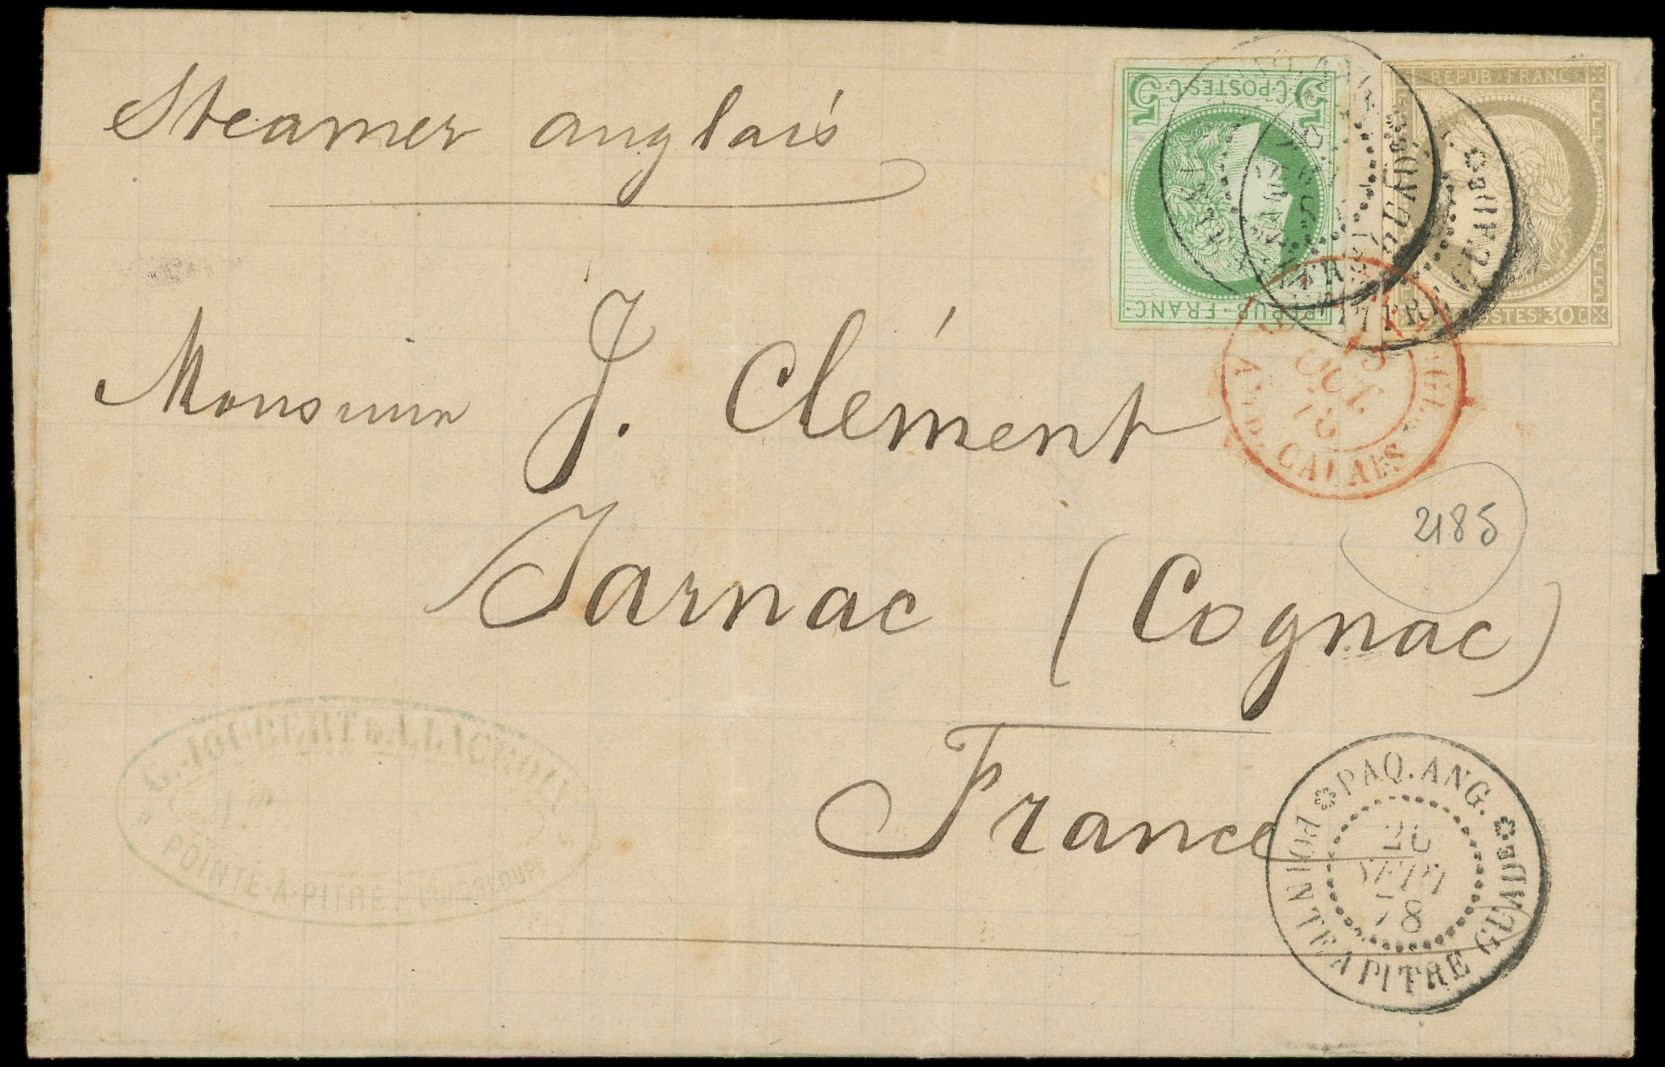 Steamer anglais
5 C·POSTES·C 5
REPUB·FRANC·
REPUB·FRANC
POSTES·30C
GUADE
ANGL.
13
OCT.
78
CALAIS
2185
Monsieur J. Clément
Jarnac (Cognac)
France
JOUBERT &
POINTE-A-PITRE
PAQ. ANG.
SEPT
78
POINTE A PITRE GUADE